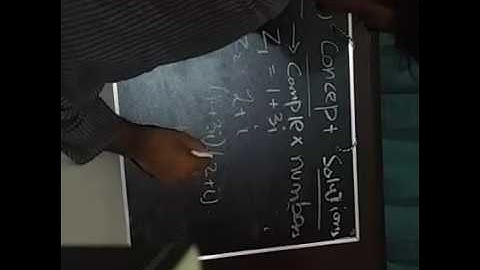 "Concept Solutions"
→ Complex numbers
Z₁ = 1+3i
Z₂ = 2+i
(1+3i)(2+i)